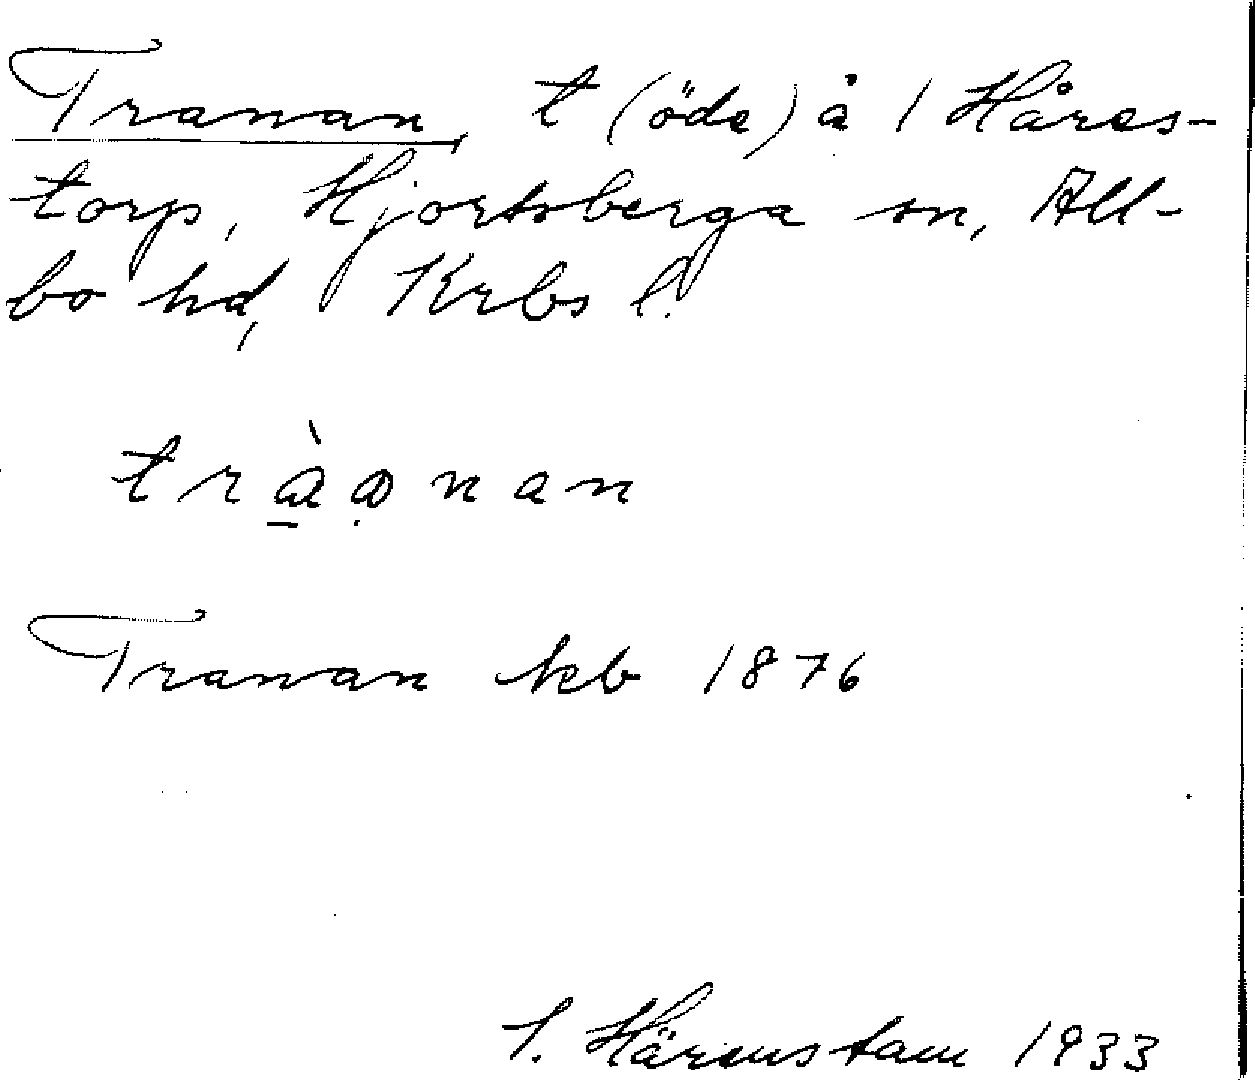 Tranan, t (öde) å 1 Håres-
torp, Hjortsberga sn, All-
bo hd, Krbs l.
tràọnan
Tranan kb 1876
Härenstam 1933